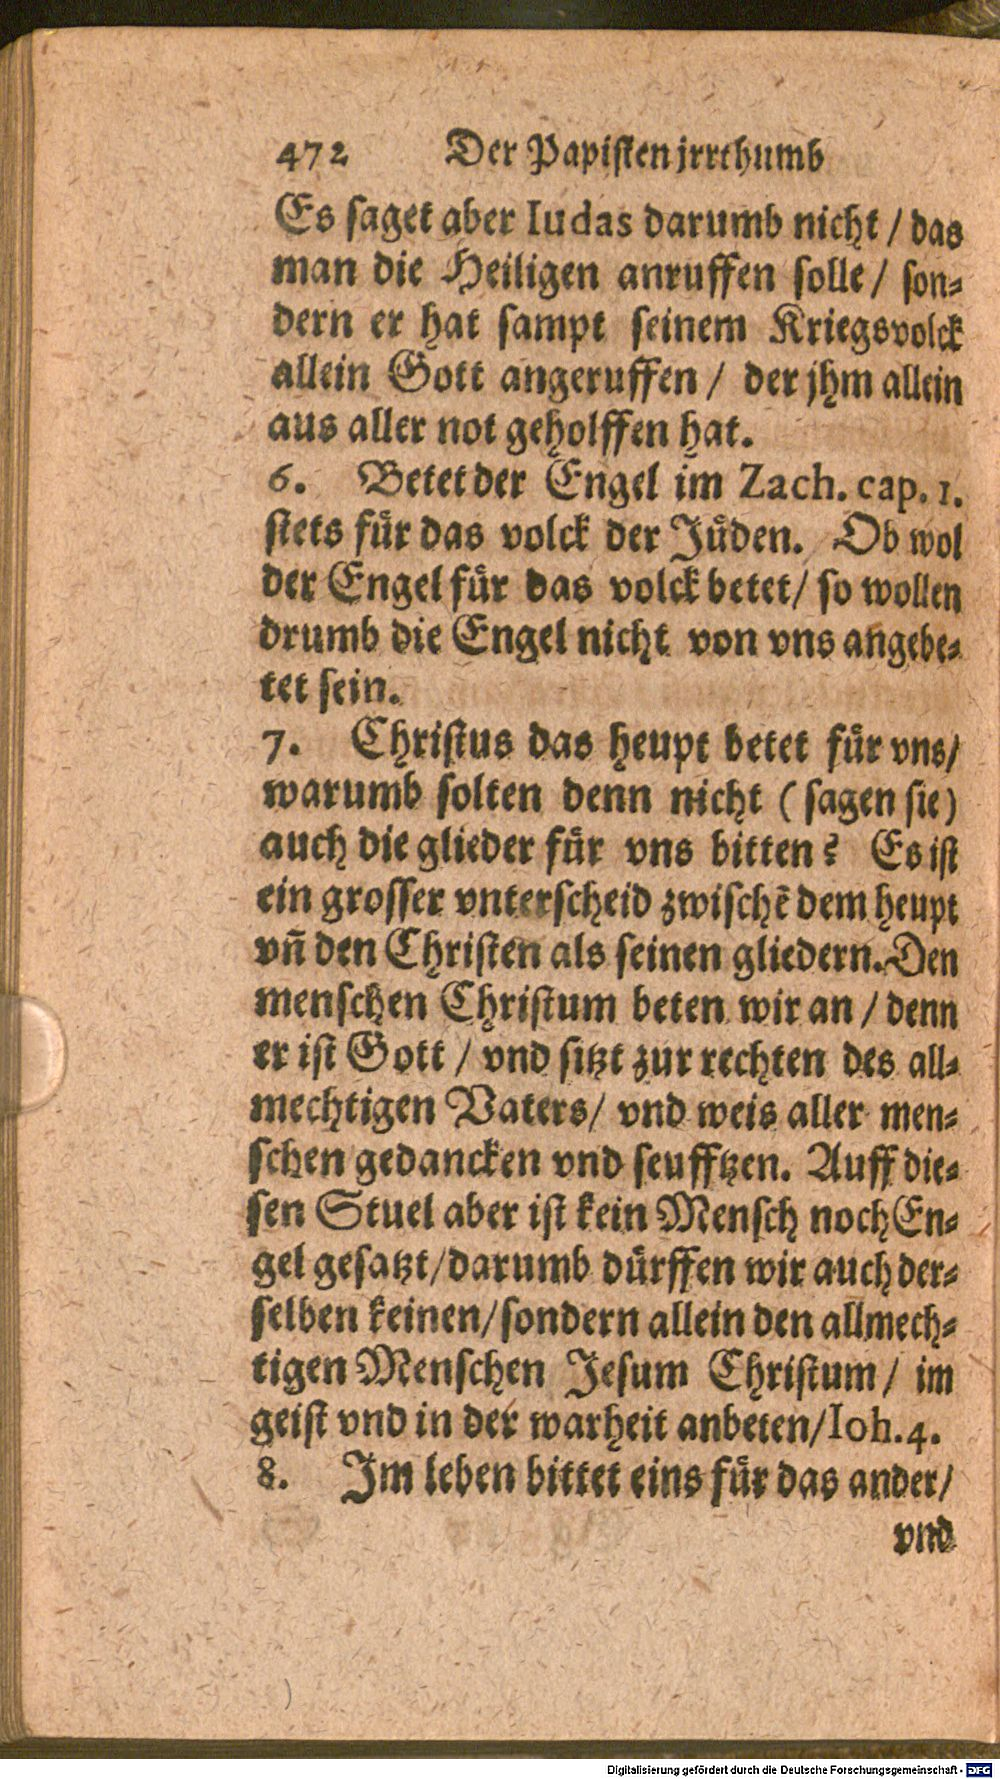 472 Der Papisten jrrthumb
Es saget aber Iudas darumb nicht / das
man die Heiligen anruffen solle / son⸗
dern er hat sampt seinem Kriegsvolck
allein Gott angeruffen / der jhm allein
aus aller not geholffen hat.
6. Betet der Engel im Zach. cap. 1.
stets fuͤr das volck der Juͤden. Ob wol
der Engel fuͤr das volck betet / so wollen
drumb die Engel nicht von vns angebe⸗
tet sein.
7. Christus das heupt betet fuͤr vns /
warumb solten denn nicht ( sagen sie )
auch die glieder fuͤr vns bitten? Es ist
ein grosser vnterscheid zwischẽ dem heupt
vñ den Christen als seinen gliedern. Den
menschen Christum beten wir an / denn
er ist Gott / vnd sitzt zur rechten des all⸗
mechtigen Vaters / vnd weis aller men⸗
schen gedancken vnd seufftzen. Auff die⸗
sen Stuel aber ist kein Mensch noch En⸗
gel gesatzt / darumb duͤrffen wir auch der⸗
selben keinen / sondern allein den allmech⸗
tigen Menschen Jesum Christum / im
geist vnd in der warheit anbeten / Ioh. 4.
8. Im leben bittet eins fuͤr das ander /
vnd
Digitalisierung gefördert durch die Deutsche Forschungsgemeinschaft - DFG